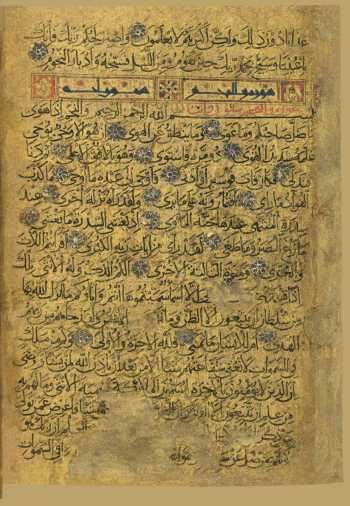 عذابا دون ذلك ولكن اكثرهم لا يعلمون واصبر لحكم ربك فانك
باعيننا وسبح بحمد ربك حين تقوم ومن الليل فسبحه وادبار النجوم
سورة والنجم
بسم الله الرحمن الرحيم والنجم اذا هوى
ما ضل صاحبكم وما غوى وما ينطق عن الهوى ان هو الا وحي يوحى
علمه شديد القوى ذو مرة فاستوى وهو بالافق الاعلى ثم دنا
فتدلى فكان قاب قوسين او ادنى فاوحى الى عبده ما اوحى ما كذب
الفؤاد ما راى افتمارونه على ما يرى ولقد راه نزلة اخرى عند
سدرة المنتهى عندها جنة الماوى اذ يغشى السدرة ما يغشى
ما زاغ البصر وما طغى لقد راى من ايات ربه الكبرى افرايتم اللات
والعزى ومناة الثالثة الاخرى الكم الذكر وله الانثى تلك
اذا قسمة الا اسماء سميتموها انتم واباؤكم ما انزل الله بها
من سلطان ان يتبعون الا الظن وما الانفس ولقد جاءهم من ربهم
الهدى ام للانسان ما تمنى فلله الاخرة والاولى وكم من ملك
في السموات لا تغني شفاعتهم شيئا الا من بعد ان ياذن الله لمن يشاء ويرضى
ان الذين لا يؤمنون بالاخرة ليسمون تسمية الانثى وما لهم به
من علم ان يتبعون الا الظن شيئا فاعرض عن من تولى
عن ذكرنا
في السموات